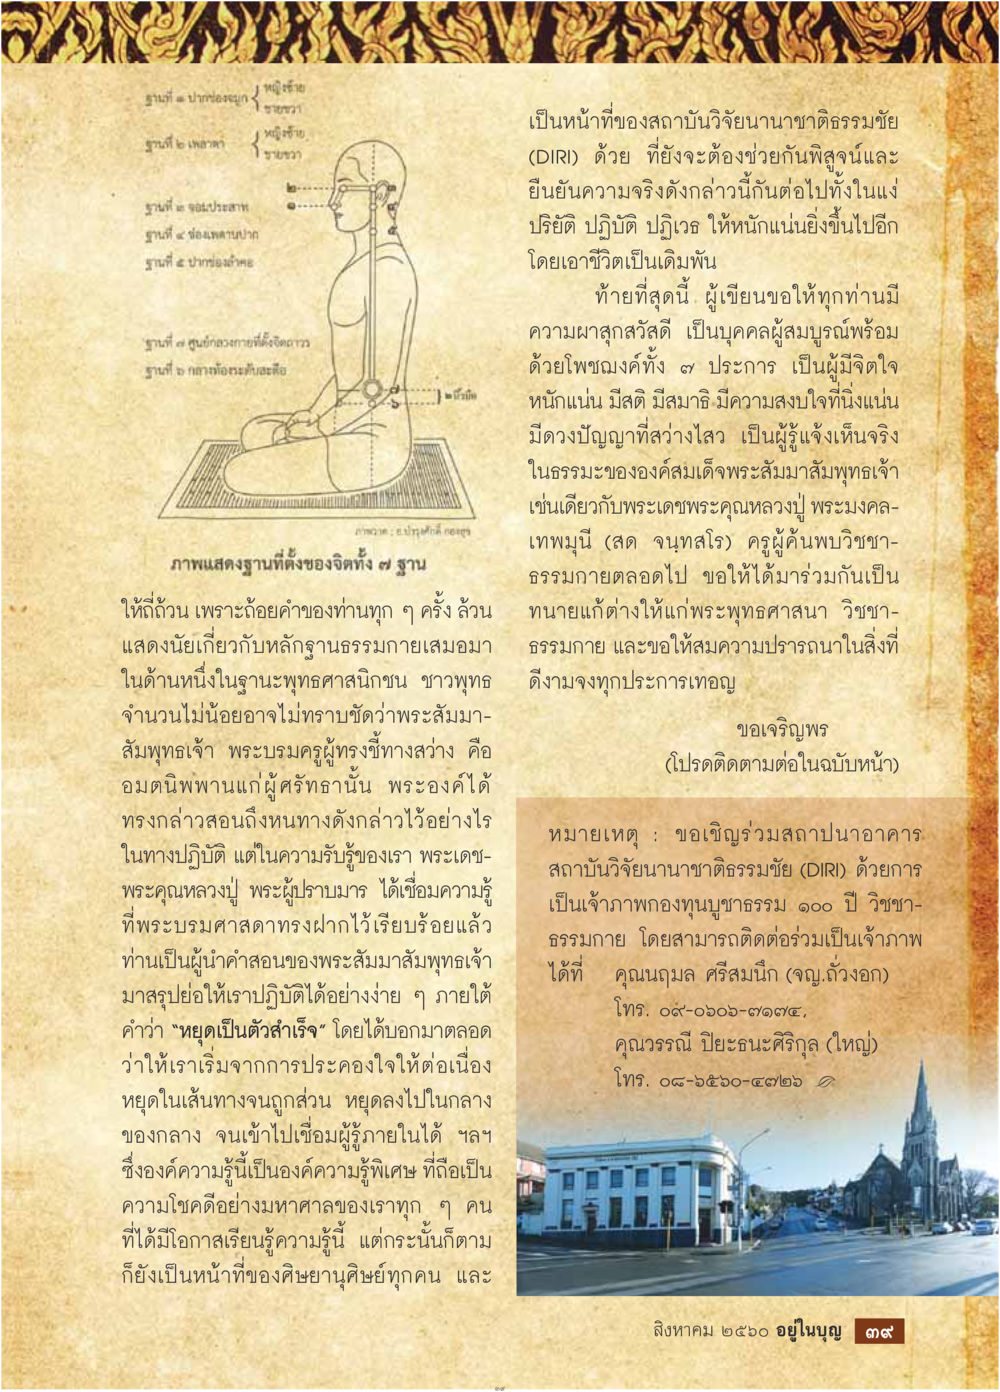 ฐานที่ ๑ ปากช่องจมูก { หญิงซ้าย
ชายขวา
ฐานที่ ๒ เพลาตา { หญิงซ้าย
ชายขวา
ฐานที่ ๓ จอมประสาท
ฐานที่ ๔ ช่องเพดานปาก
ฐานที่ ๕ ปากช่องลำคอ
ฐานที่ ๗ ศูนย์กลางกายที่ตั้งจิตถาวร
ฐานที่ ๖ กลางท้องระดับสะดือ
๒
๑
๓
๔
๕
๗
๖
๒ นิ้วมือ
ภาพวาด : อ.บำรุงศักดิ์ กองสุข
ภาพแสดงฐานที่ตั้งของจิตทั้ง ๗ ฐาน
ให้ถี่ถ้วน เพราะถ้อยคำของท่านทุก ๆ ครั้ง ล้วน
แสดงนัยเกี่ยวกับหลักฐานธรรมกายเสมอมา
ในด้านหนึ่งในฐานะพุทธศาสนิกชน ชาวพุทธ
จำนวนไม่น้อยอาจไม่ทราบชัดว่าพระสัมมา-
สัมพุทธเจ้า พระบรมครูผู้ทรงชี้ทางสว่าง คือ
อมตนิพพานแก่ผู้ศรัทธานั้น พระองค์ได้
ทรงกล่าวสอนถึงหนทางดังกล่าวไว้อย่างไร
ในทางปฏิบัติ แต่ในความรับรู้ของเรา พระเดช-
พระคุณหลวงปู่ พระผู้ปราบมาร ได้เชื่อมความรู้
ที่พระบรมศาสดาทรงฝากไว้เรียบร้อยแล้ว
ท่านเป็นผู้นำคำสอนของพระสัมมาสัมพุทธเจ้า
มาสรุปย่อให้เราปฏิบัติได้อย่างง่าย ๆ ภายใต้
คำว่า “หยุดเป็นตัวสำเร็จ” โดยได้บอกมาตลอด
ว่าให้เราเริ่มจากการประคองใจให้ต่อเนื่อง
หยุดในเส้นทางจนถูกส่วน หยุดลงไปในกลาง
ของกลาง จนเข้าไปเชื่อมผู้รู้ภายในได้ ฯลฯ
ซึ่งองค์ความรู้นี้เป็นองค์ความรู้พิเศษ ที่ถือเป็น
ความโชคดีอย่างมหาศาลของเราทุก ๆ คน
ที่ได้มีโอกาสเรียนรู้ความรู้นี้ แต่กระนั้นก็ตาม
ก็ยังเป็นหน้าที่ของศิษยานุศิษย์ทุกคน และ
เป็นหน้าที่ของสถาบันวิจัยนานาชาติธรรมชัย
(DIRI) ด้วย ที่ยังจะต้องช่วยกันพิสูจน์และ
ยืนยันความจริงดังกล่าวนี้กันต่อไปทั้งในแง่
ปริยัติ ปฏิบัติ ปฏิเวธ ให้หนักแน่นยิ่งขึ้นไปอีก
โดยเอาชีวิตเป็นเดิมพัน
ท้ายที่สุดนี้ ผู้เขียนขอให้ทุกท่านมี
ความผาสุกสวัสดี เป็นบุคคลผู้สมบูรณ์พร้อม
ด้วยโพชฌงค์ทั้ง ๗ ประการ เป็นผู้มีจิตใจ
หนักแน่น มีสติ มีสมาธิ มีความสงบใจที่นิ่งแน่น
มีดวงปัญญาที่สว่างไสว เป็นผู้รู้แจ้งเห็นจริง
ในธรรมะขององค์สมเด็จพระสัมมาสัมพุทธเจ้า
เช่นเดียวกับพระเดชพระคุณหลวงปู่ พระมงคล-
เทพมุนี (สด จนฺทสโร) ครูผู้ค้นพบวิชชา-
ธรรมกายตลอดไป ขอให้ได้มาร่วมกันเป็น
ทนายแก้ต่างให้แก่พระพุทธศาสนา วิชชา-
ธรรมกาย และขอให้สมความปรารถนาในสิ่งที่
ดีงามจงทุกประการเทอญ
ขอเจริญพร
(โปรดติดตามต่อในฉบับหน้า)
หมายเหตุ : ขอเชิญร่วมสถาปนาอาคาร
สถาบันวิจัยนานาชาติธรรมชัย (DIRI) ด้วยการ
เป็นเจ้าภาพกองทุนบูชาธรรม ๑๐๐ ปี วิชชา-
ธรรมกาย โดยสามารถติดต่อร่วมเป็นเจ้าภาพ
ได้ที่ คุณนฤมล ศรีสมนึก (จญ.ถั่วงอก)
โทร. ๐๙-๐๖๐๖-๗๑๗๔,
คุณวรรณี ปิยะธนะศิริกุล (ใหญ่)
โทร. ๐๘-๖๕๖๐-๔๗๒๖
สิงหาคม ๒๕๖๐ อยู่ในบุญ ๓๙